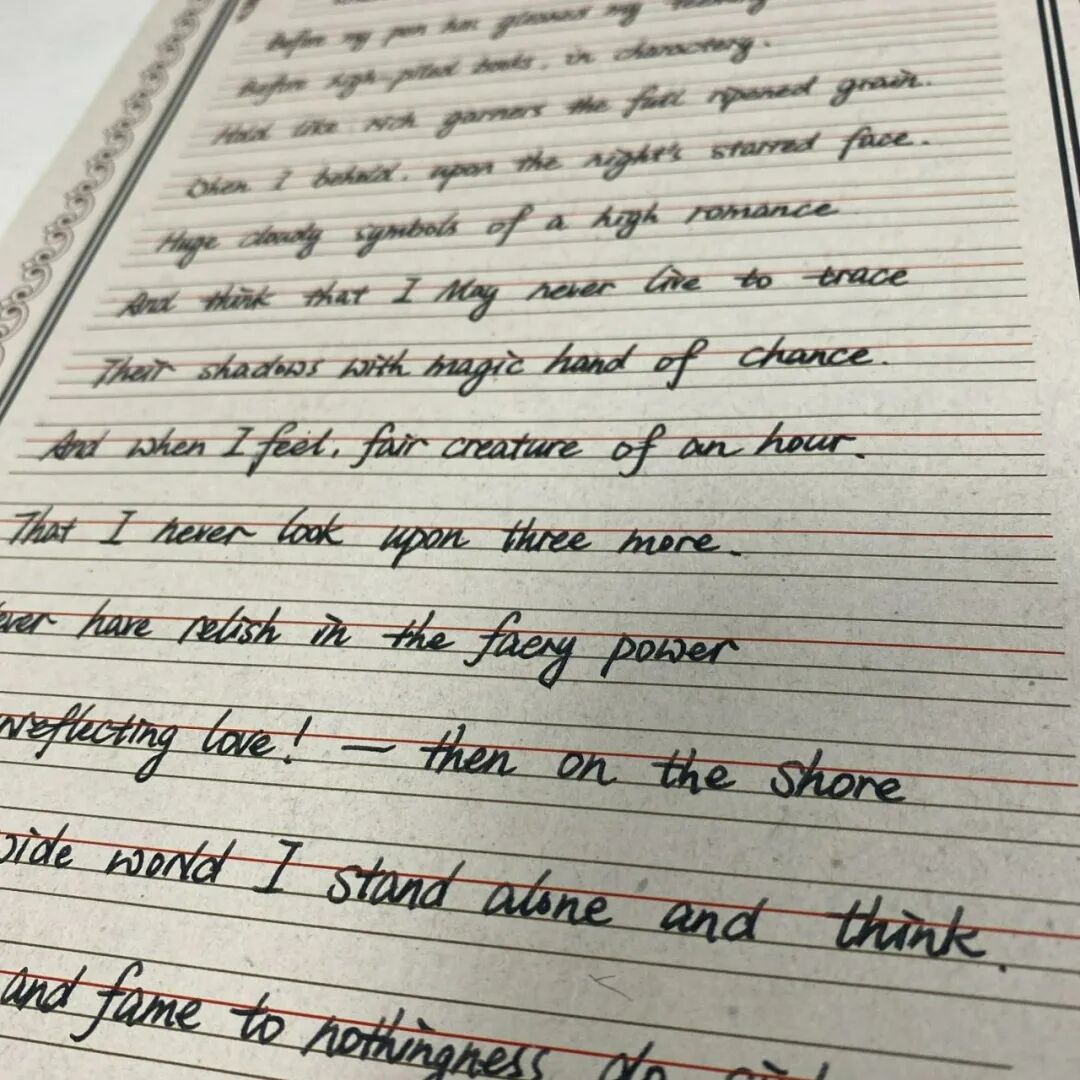 Before my pen has gleaned my
Before high-pilled books, in charactery.
Hold like rich garners the full ripened grain.
When I behold, upon the night's starred face.
Huge cloudy symbols of a high romance
And think that I May never live to trace
Their shadows with magic hand of chance.
And when I feel, fair creature of an hour.
That I never look upon three more.
ever have relish in the faery power
nreflecting love! — then on the shore
wide world I stand alone and think.
and fame to nothingness do